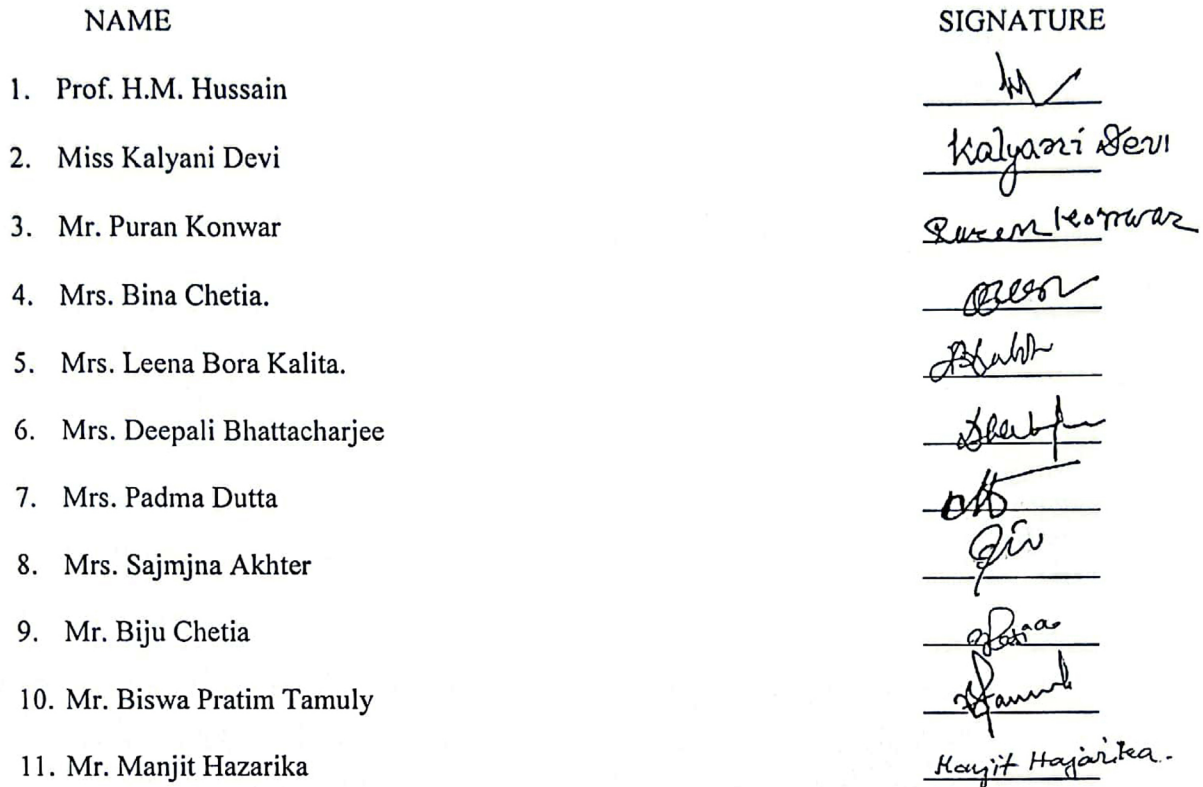 NAME SIGNATURE
1. Prof. H.M. Hussain
2. Miss Kalyani Devi Kalyani Devi
3. Mr. Puran Konwar Konwar
4. Mrs. Bina Chetia.
5. Mrs. Leena Bora Kalita.
6. Mrs. Deepali Bhattacharjee
7. Mrs. Padma Dutta
8. Mrs. Sajmjna Akhter
9. Mr. Biju Chetia
10. Mr. Biswa Pratim Tamuly
11. Mr. Manjit Hazarika Manjit Hajarika.